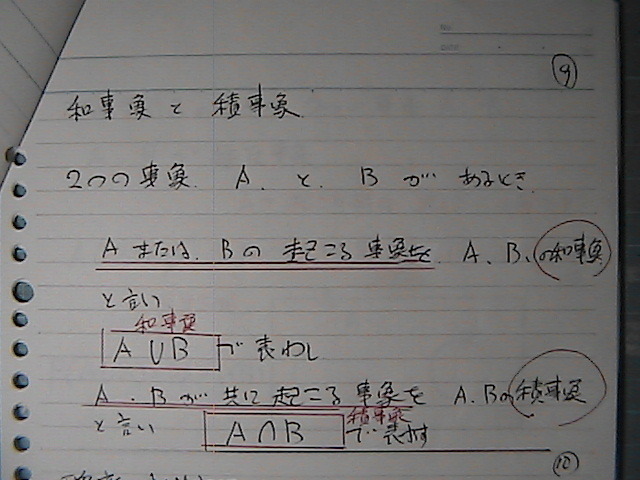 No.
DATE
⑨
和事象と積事象
2つの事象 A.と.B があるとき.
Aまたは.Bの起こる事象を.A、B、の和事象
と言い
和事象
A∪Bで表わし
A.Bが共に起こる事象をA.Bの積事象
積事象
と言いA∩Bで表わす
⑩